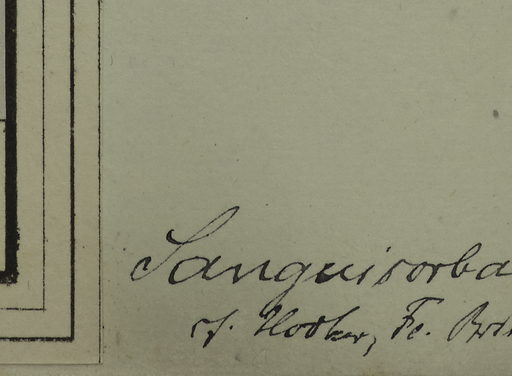 Sanguisorba
cf. Hooker, Fl.